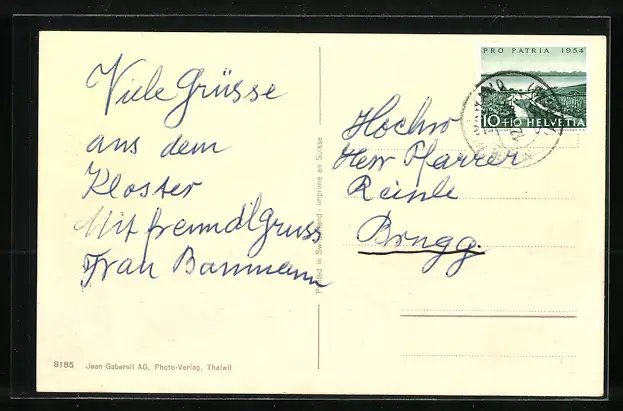 Viele Grüsse
aus dem
Kloster
Mit freundl Gruss
Frau Bammann
PRO PATRIA 1954
10+10 HELVETIA
Hochw
Herr Pfarrer
Reinle
Brugg.
Printed in Switzerland - Imprimé en Suisse
8185 Jean Gaberell AG, Photo-Verlag, Thalwil